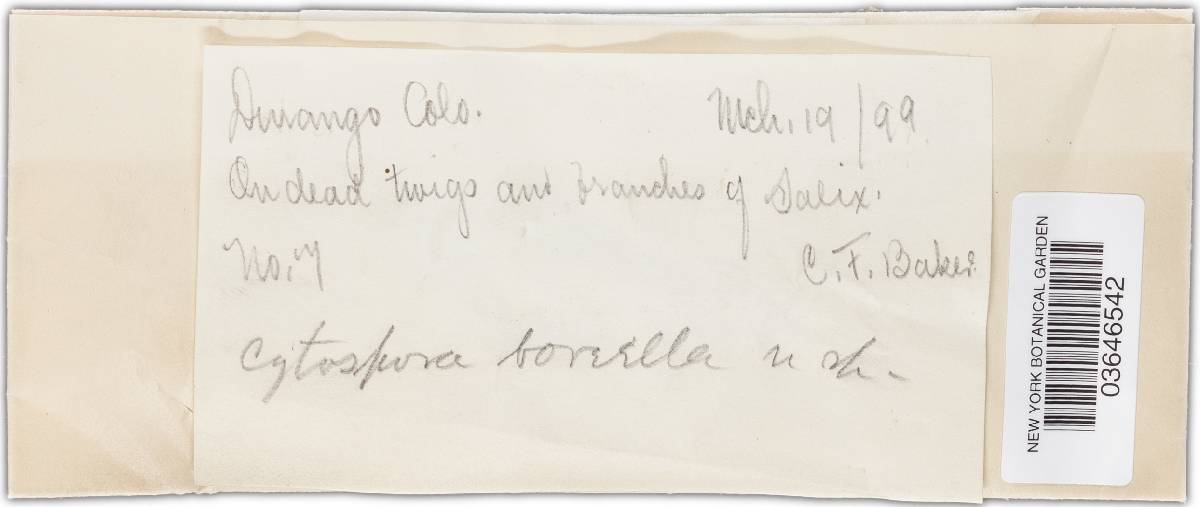 Durango Colo. Mch. 19/99
On dead twigs and branches of Salix.
No. 7 C. F. Baker.
Cytospora boreella n sp.
NEW YORK BOTANICAL GARDEN
03646542